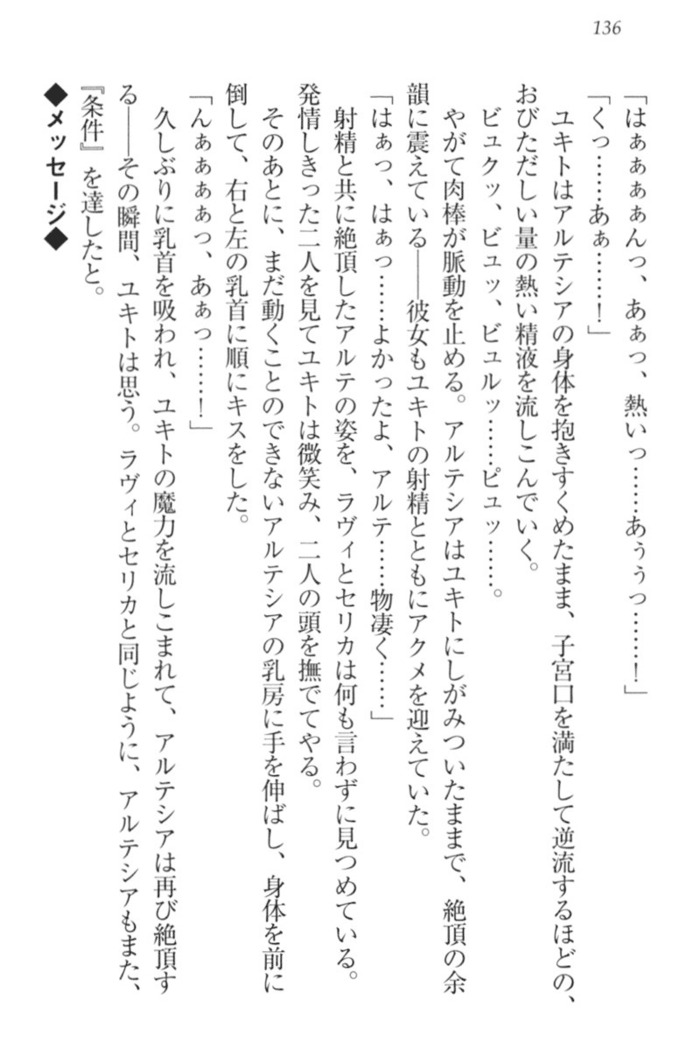 136
「はぁぁぁぁんっ、あぁっ、熱いっ……あぅぅっ……！」
「くっ……あぁ……！」
ユキトはアルテシアの身体を抱きすくめたまま、子宮口を満たして逆流するほどの、
おびただしい量の熱い精液を流しこんでいく。
ビュクッ、ビュッ、ビュルッ……ピュッ……。
やがて肉棒が脈動を止める。アルテシアはユキトにしがみついたままで、絶頂の余
韻に震えている――彼女もユキトの射精とともにアクメを迎えていた。
「はぁっ、はぁっ……よかったよ、アルテ……物凄く……」
射精と共に絶頂したアルテの姿を、ラヴィとセリカは何も言わずに見つめている。
発情しきった二人を見てユキトは微笑み、二人の頭を撫でてやる。
そのあとに、まだ動くことのできないアルテシアの乳房に手を伸ばし、身体を前に
倒して、右と左の乳首に順にキスをした。
「んぁぁぁぁっ、あぁっ……！」
久しぶりに乳首を吸われ、ユキトの魔力を流しこまれて、アルテシアは再び絶頂す
る――その瞬間、ユキトは思う。ラヴィとセリカと同じように、アルテシアもまた、
『条件』を達したと。
◆メッセージ◆